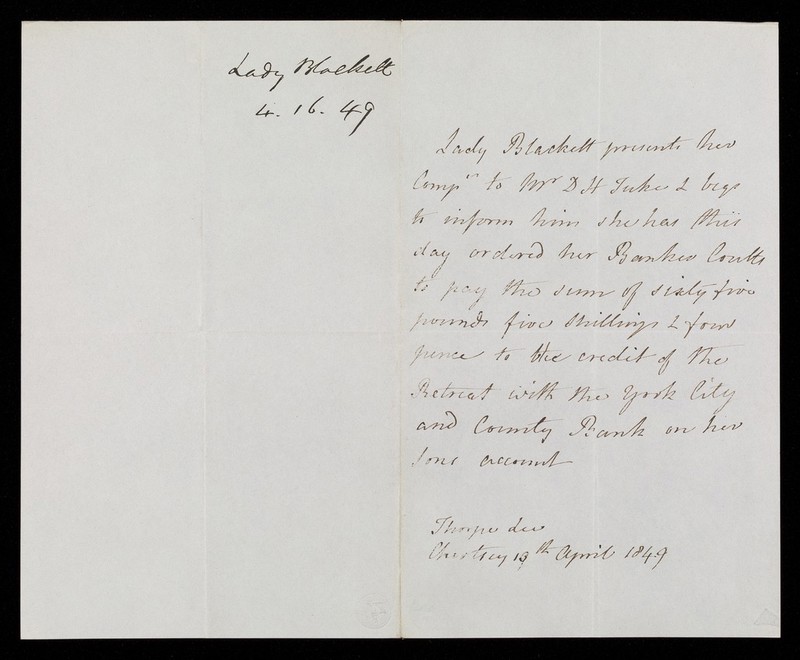 Lady Blackett
4. 16. 49
Lady Blackett presents her
Compts to Mr D H Tuke & begs
to inform him she has this
day ordered her Banker Coutts
to pay the sum of sixty five
pounds five shillings & four
pence to the credit of the
Retreat with the York City
and County Bank on her
sons account
Thorpe Lee
Chertsey 19th April 1849